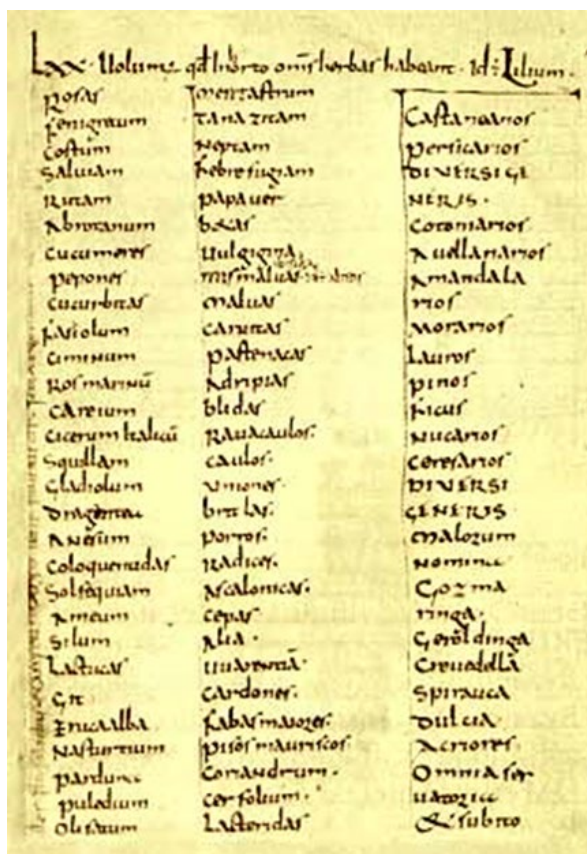 LXX. Uolum; qd In horto oms herbas habeant. Id: Lilium.
Rosas
Fenigrecum
Costum
Saluiam
Rutam
Abrotanum
Cucumeres
pepones
cucurbitas
Fasiolum
ciminum
Ros marinū
careium
cicerum Italicū
Squillam
Gladiolum
dragantea
Anesum
coloquentidas
Solsequiam
Ameum
Silum
Lactucas
Git
Erucaalba
Nasturtium
parduna
puledium
olisatum
mentastrum
Tanazitam
Neptam
Febrefugiam
papauer
betas
Uulgigina
mismaluas
maluas
caruitas
pastenacas
Adripias
blidas
Rauacaulos.
caulos.
uniones.
britlas.
porros.
Radices.
Ascalonicas.
cepas
Alia.
uuarentiā.
cardones.
Fabas maiores.
pisos mauriscos
coriandrum.
cerfolium.
Lacteridas
Castanearios
persicarios
DIVERSI GE
NERIS.
cotoniarios
Auellanarios
Amandala
rios
Morarios
Lauros
pinos
Ficus
Nucarios
ceresarios
DIVERSI
GENERIS.
Malorum
Nomina
Gozma
ringa.
Geroldinga
Creuedella
Spirauca
Dulcia
Acriores
Omnia ser
uatoria
& subito